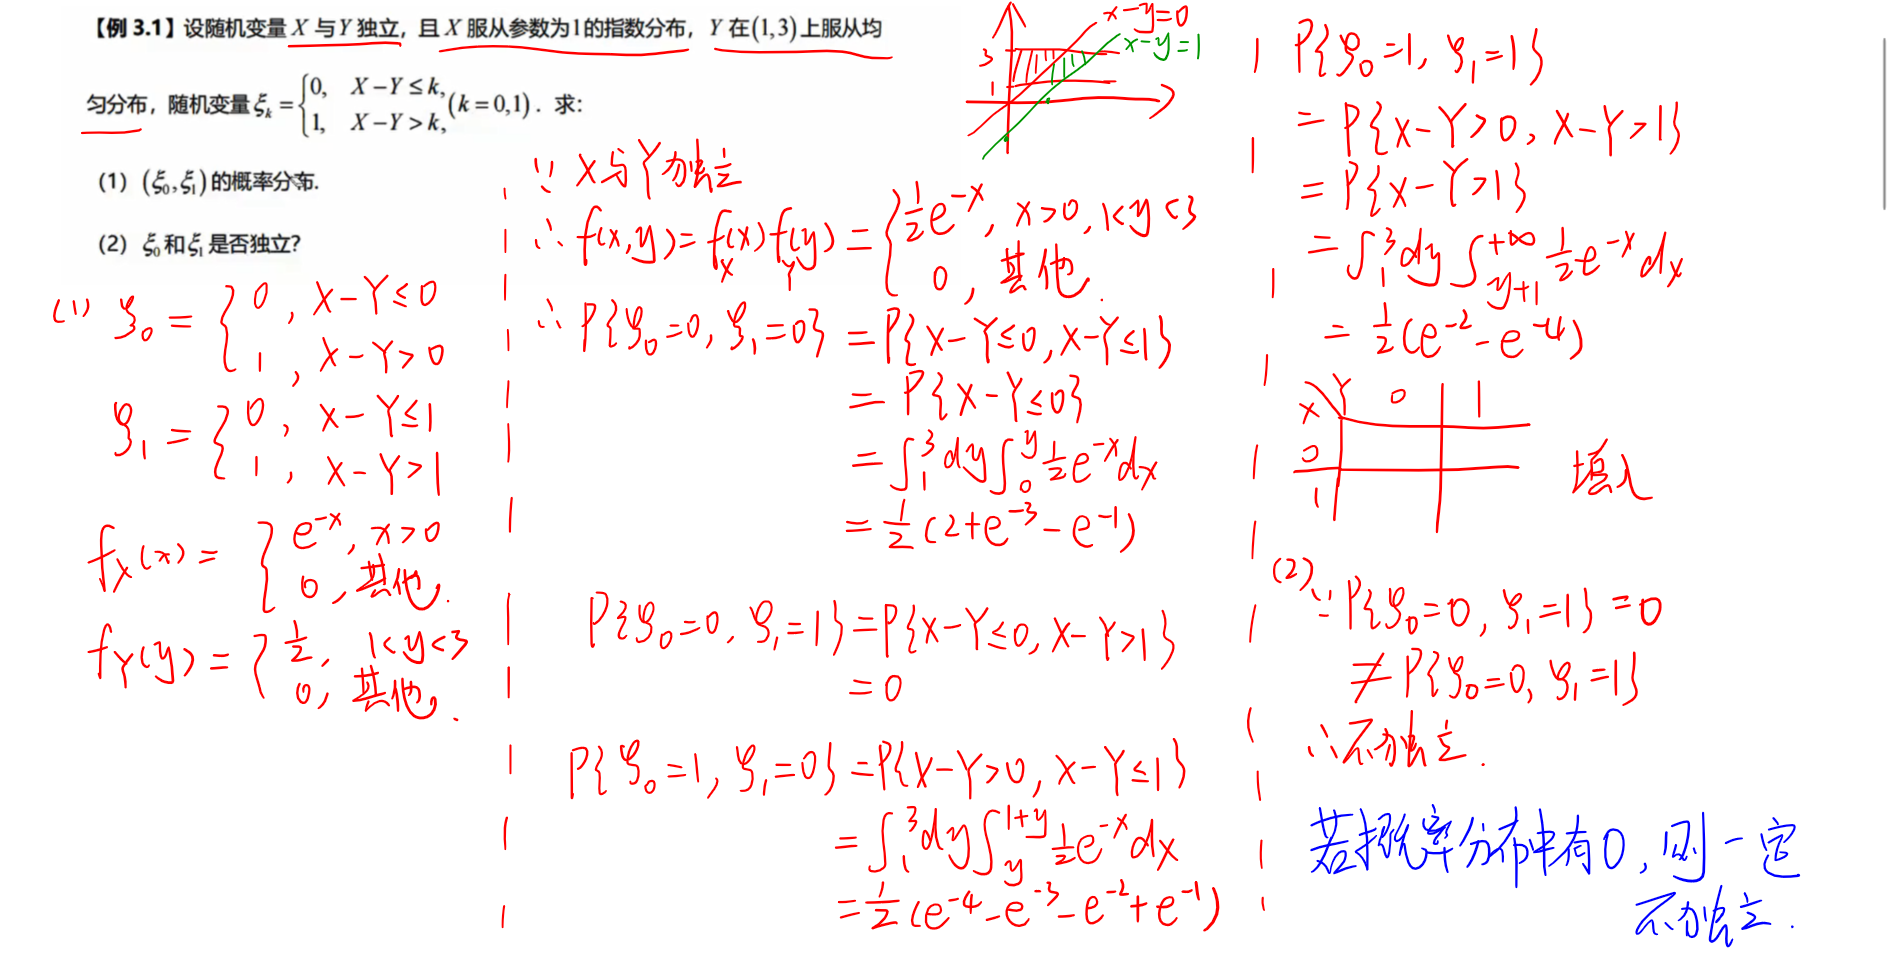 【例 3.1】设随机变量 X 与 Y 独立，且 X 服从参数为1的指数分布，Y 在(1,3)上服从均
匀分布，随机变量 ξₖ = { 0, X−Y≤k, 1, X−Y>k, (k=0,1)．求：
(1) (ξ₀,ξ₁)的概率分布.
(2) ξ₀和ξ₁是否独立?
(1) ξ₀ = { 0, X−Y≤0
1, X−Y>0
ξ₁ = { 0, X−Y≤1
1, X−Y>1
f_X(x) = { e^{-x}, x>0
0, 其他.
f_Y(y) = { 1/2, 1<y<3
0, 其他.
x−y=0
x−y=1
3
1
∵ X与Y独立
∴ f(x,y) = f_X(x) f_Y(y) = { 1/2 e^{-x}, x>0, 1<y<3
0, 其他.
∴ P{ξ₀=0, ξ₁=0} = P{X−Y≤0, X−Y≤1}
= P{X−Y≤0}
= ∫₁³dy∫₀^y 1/2 e^{-x}dx
= 1/2 (2+e^{-3}−e^{-1})
P{ξ₀=0, ξ₁=1} = P{X−Y≤0, X−Y>1}
= 0
P{ξ₀=1, ξ₁=0} = P{X−Y>0, X−Y≤1}
= ∫₁³dy∫_y^{1+y} 1/2 e^{-x}dx
= 1/2 (e^{-4}−e^{-3}−e^{-2}+e^{-1})
P{ξ₀=1, ξ₁=1}
= P{X−Y>0, X−Y>1}
= P{X−Y>1}
= ∫₁³dy∫_{y+1}^{+∞} 1/2 e^{-x}dx
= 1/2 (e^{-2}−e^{-4})
X Y 0 1
0
1
填入
(2) ∵ P{ξ₀=0, ξ₁=1} = 0
≠ P{ξ₀=0, ξ₁=1}
∴ 不独立.
若概率分布中有0, 则一定
不独立.